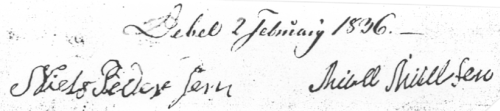 Debel 2 Februarÿ 1836.
Niels Peder sen Niell Niell sen